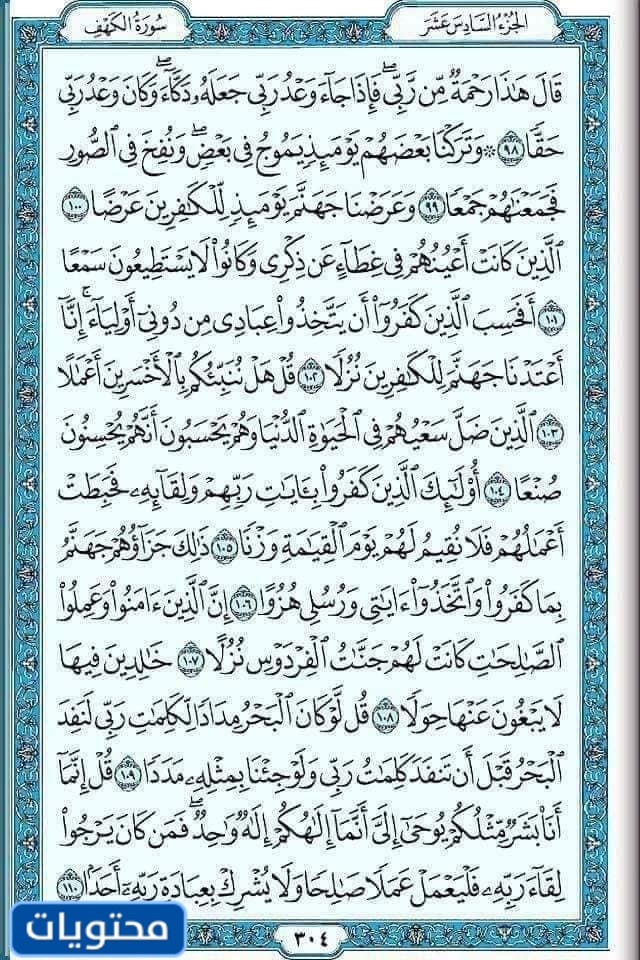 الجزء السادس عشر
سورة الكهف
قَالَ هَٰذَا رَحْمَةٌ مِّن رَّبِّي ۖ فَإِذَا جَآءَ وَعْدُ رَبِّي جَعَلَهُۥ دَكَّآءَ ۖ وَكَانَ وَعْدُ رَبِّي
حَقًّا ٩٨ ۞ وَتَرَكْنَا بَعْضَهُمْ يَوْمَئِذٍ يَمُوجُ فِي بَعْضٍ ۖ وَنُفِخَ فِي ٱلصُّورِ
فَجَمَعْنَٰهُمْ جَمْعًا ٩٩ وَعَرَضْنَا جَهَنَّمَ يَوْمَئِذٍ لِّلْكَٰفِرِينَ عَرْضًا ١٠٠
ٱلَّذِينَ كَانَتْ أَعْيُنُهُمْ فِي غِطَآءٍ عَن ذِكْرِي وَكَانُوا۟ لَا يَسْتَطِيعُونَ سَمْعًا
١٠١ أَفَحَسِبَ ٱلَّذِينَ كَفَرُوٓا۟ أَن يَتَّخِذُوا۟ عِبَادِي مِن دُونِيٓ أَوْلِيَآءَ ۚ إِنَّآ
أَعْتَدْنَا جَهَنَّمَ لِلْكَٰفِرِينَ نُزُلًا ١٠٢ قُلْ هَلْ نُنَبِّئُكُم بِٱلْأَخْسَرِينَ أَعْمَٰلًا
١٠٣ ٱلَّذِينَ ضَلَّ سَعْيُهُمْ فِي ٱلْحَيَوٰةِ ٱلدُّنْيَا وَهُمْ يَحْسَبُونَ أَنَّهُمْ يُحْسِنُونَ
صُنْعًا ١٠٤ أُو۟لَٰٓئِكَ ٱلَّذِينَ كَفَرُوا۟ بِـَٔايَٰتِ رَبِّهِمْ وَلِقَآئِهِۦ فَحَبِطَتْ
أَعْمَٰلُهُمْ فَلَا نُقِيمُ لَهُمْ يَوْمَ ٱلْقِيَٰمَةِ وَزْنًا ١٠٥ ذَٰلِكَ جَزَآؤُهُمْ جَهَنَّمُ
بِمَا كَفَرُوا۟ وَٱتَّخَذُوٓا۟ ءَايَٰتِي وَرُسُلِي هُزُوًا ١٠٦ إِنَّ ٱلَّذِينَ ءَامَنُوا۟ وَعَمِلُوا۟
ٱلصَّٰلِحَٰتِ كَانَتْ لَهُمْ جَنَّٰتُ ٱلْفِرْدَوْسِ نُزُلًا ١٠٧ خَٰلِدِينَ فِيهَا
لَا يَبْغُونَ عَنْهَا حِوَلًا ١٠٨ قُل لَّوْ كَانَ ٱلْبَحْرُ مِدَادًا لِّكَلِمَٰتِ رَبِّي لَنَفِدَ
ٱلْبَحْرُ قَبْلَ أَن تَنفَدَ كَلِمَٰتُ رَبِّي وَلَوْ جِئْنَا بِمِثْلِهِۦ مَدَدًا ١٠٩ قُلْ إِنَّمَآ
أَنَا۠ بَشَرٌ مِّثْلُكُمْ يُوحَىٰٓ إِلَيَّ أَنَّمَآ إِلَٰهُكُمْ إِلَٰهٌ وَٰحِدٌ ۖ فَمَن كَانَ يَرْجُوا۟
لِقَآءَ رَبِّهِۦ فَلْيَعْمَلْ عَمَلًا صَٰلِحًا وَلَا يُشْرِكْ بِعِبَادَةِ رَبِّهِۦٓ أَحَدًۢا ١١٠
٣٠٤
محتويات